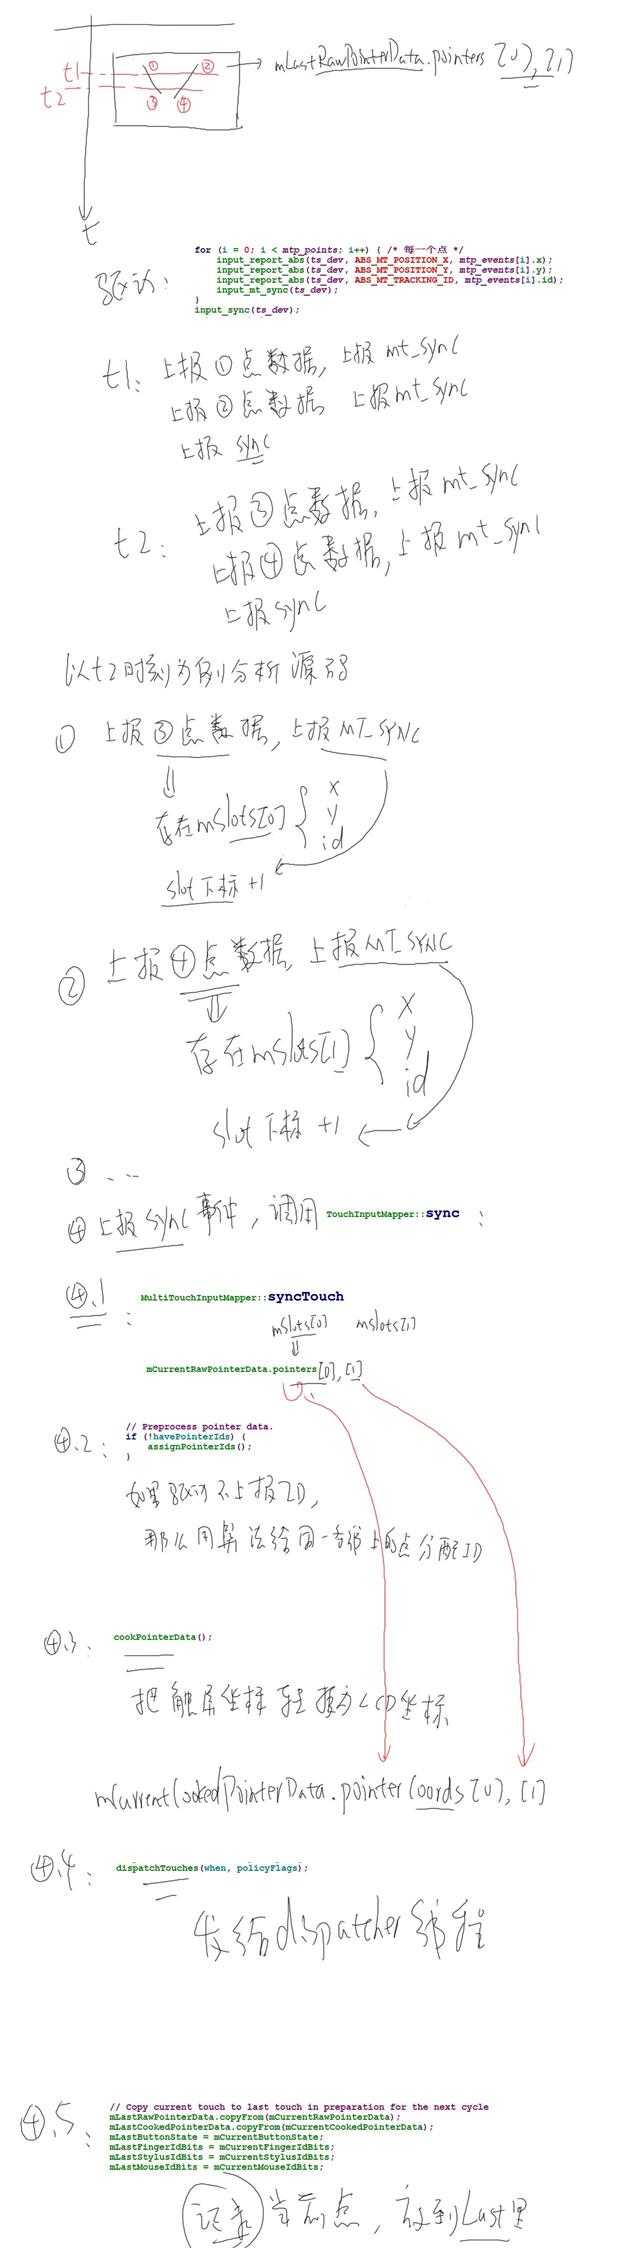 t1
t2
① ②
③ ④
mLastRawPointerData.pointers[0],[1]
t
驱动:
for (i = 0; i < mtp_points; i++) { /* 每一个点 */
input_report_abs(ts_dev, ABS_MT_POSITION_X, mtp_events[i].x);
input_report_abs(ts_dev, ABS_MT_POSITION_Y, mtp_events[i].y);
input_report_abs(ts_dev, ABS_MT_TRACKING_ID, mtp_events[i].id);
input_mt_sync(ts_dev);
}
input_sync(ts_dev);
t1: 上报①点数据, 上报mt_sync
上报②点数据 上报mt_sync
上报sync
t2: 上报③点数据, 上报mt_sync
上报④点数据, 上报mt_sync
上报sync
以t2时刻为例分析源码
① 上报③点数据, 上报MT_SYNC
存在mSlots[0] { x
y
id
slot下标+1
② 上报④点数据, 上报MT_SYNC
存在mSlots[1] { x
y
id
slot下标+1
③ ...
④ 上报sync事件, 调用 TouchInputMapper::sync :
④.1: MultiTouchInputMapper::syncTouch
mSlots[0] mSlots[1]
mCurrentRawPointerData.pointers[0],[1]
④.2: // Preprocess pointer data.
if (!havePointerIds) {
assignPointerIds();
}
如果驱动不上报ID,
那么用算法给同一条线上的点分配ID
④.3: cookPointerData();
把触屏坐标转换为LCD坐标
mCurrentCookedPointerData.pointerCoords[0],[1]
④.4: dispatchTouches(when, policyFlags);
发给dispatcher线程
④.5: // Copy current touch to last touch in preparation for the next cycle
mLastRawPointerData.copyFrom(mCurrentRawPointerData);
mLastCookedPointerData.copyFrom(mCurrentCookedPointerData);
mLastButtonState = mCurrentButtonState;
mLastFingerIdBits = mCurrentFingerIdBits;
mLastStylusIdBits = mCurrentStylusIdBits;
mLastMouseIdBits = mCurrentMouseIdBits;
记录当前点, 放到Last里